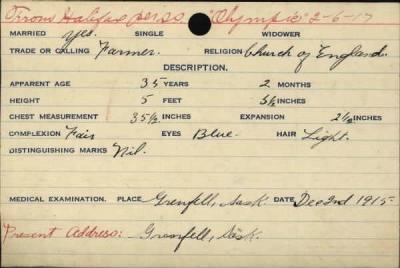 From Halifax per ss "Olympic" 2-6-17
MARRIED Yes. SINGLE WIDOWER
TRADE OR CALLING Farmer. RELIGION Church of England.
DESCRIPTION.
APPARENT AGE 35 YEARS 2 MONTHS
HEIGHT 5 FEET 5½ INCHES
CHEST MEASUREMENT 35½ INCHES EXPANSION 2½ INCHES
COMPLEXION Fair EYES Blue. HAIR Light.
DISTINGUISHING MARKS Nil.
MEDICAL EXAMINATION. PLACE Grenfell, Sask. DATE Dec 2nd 1915.
Present Address: Grenfell, Sask.